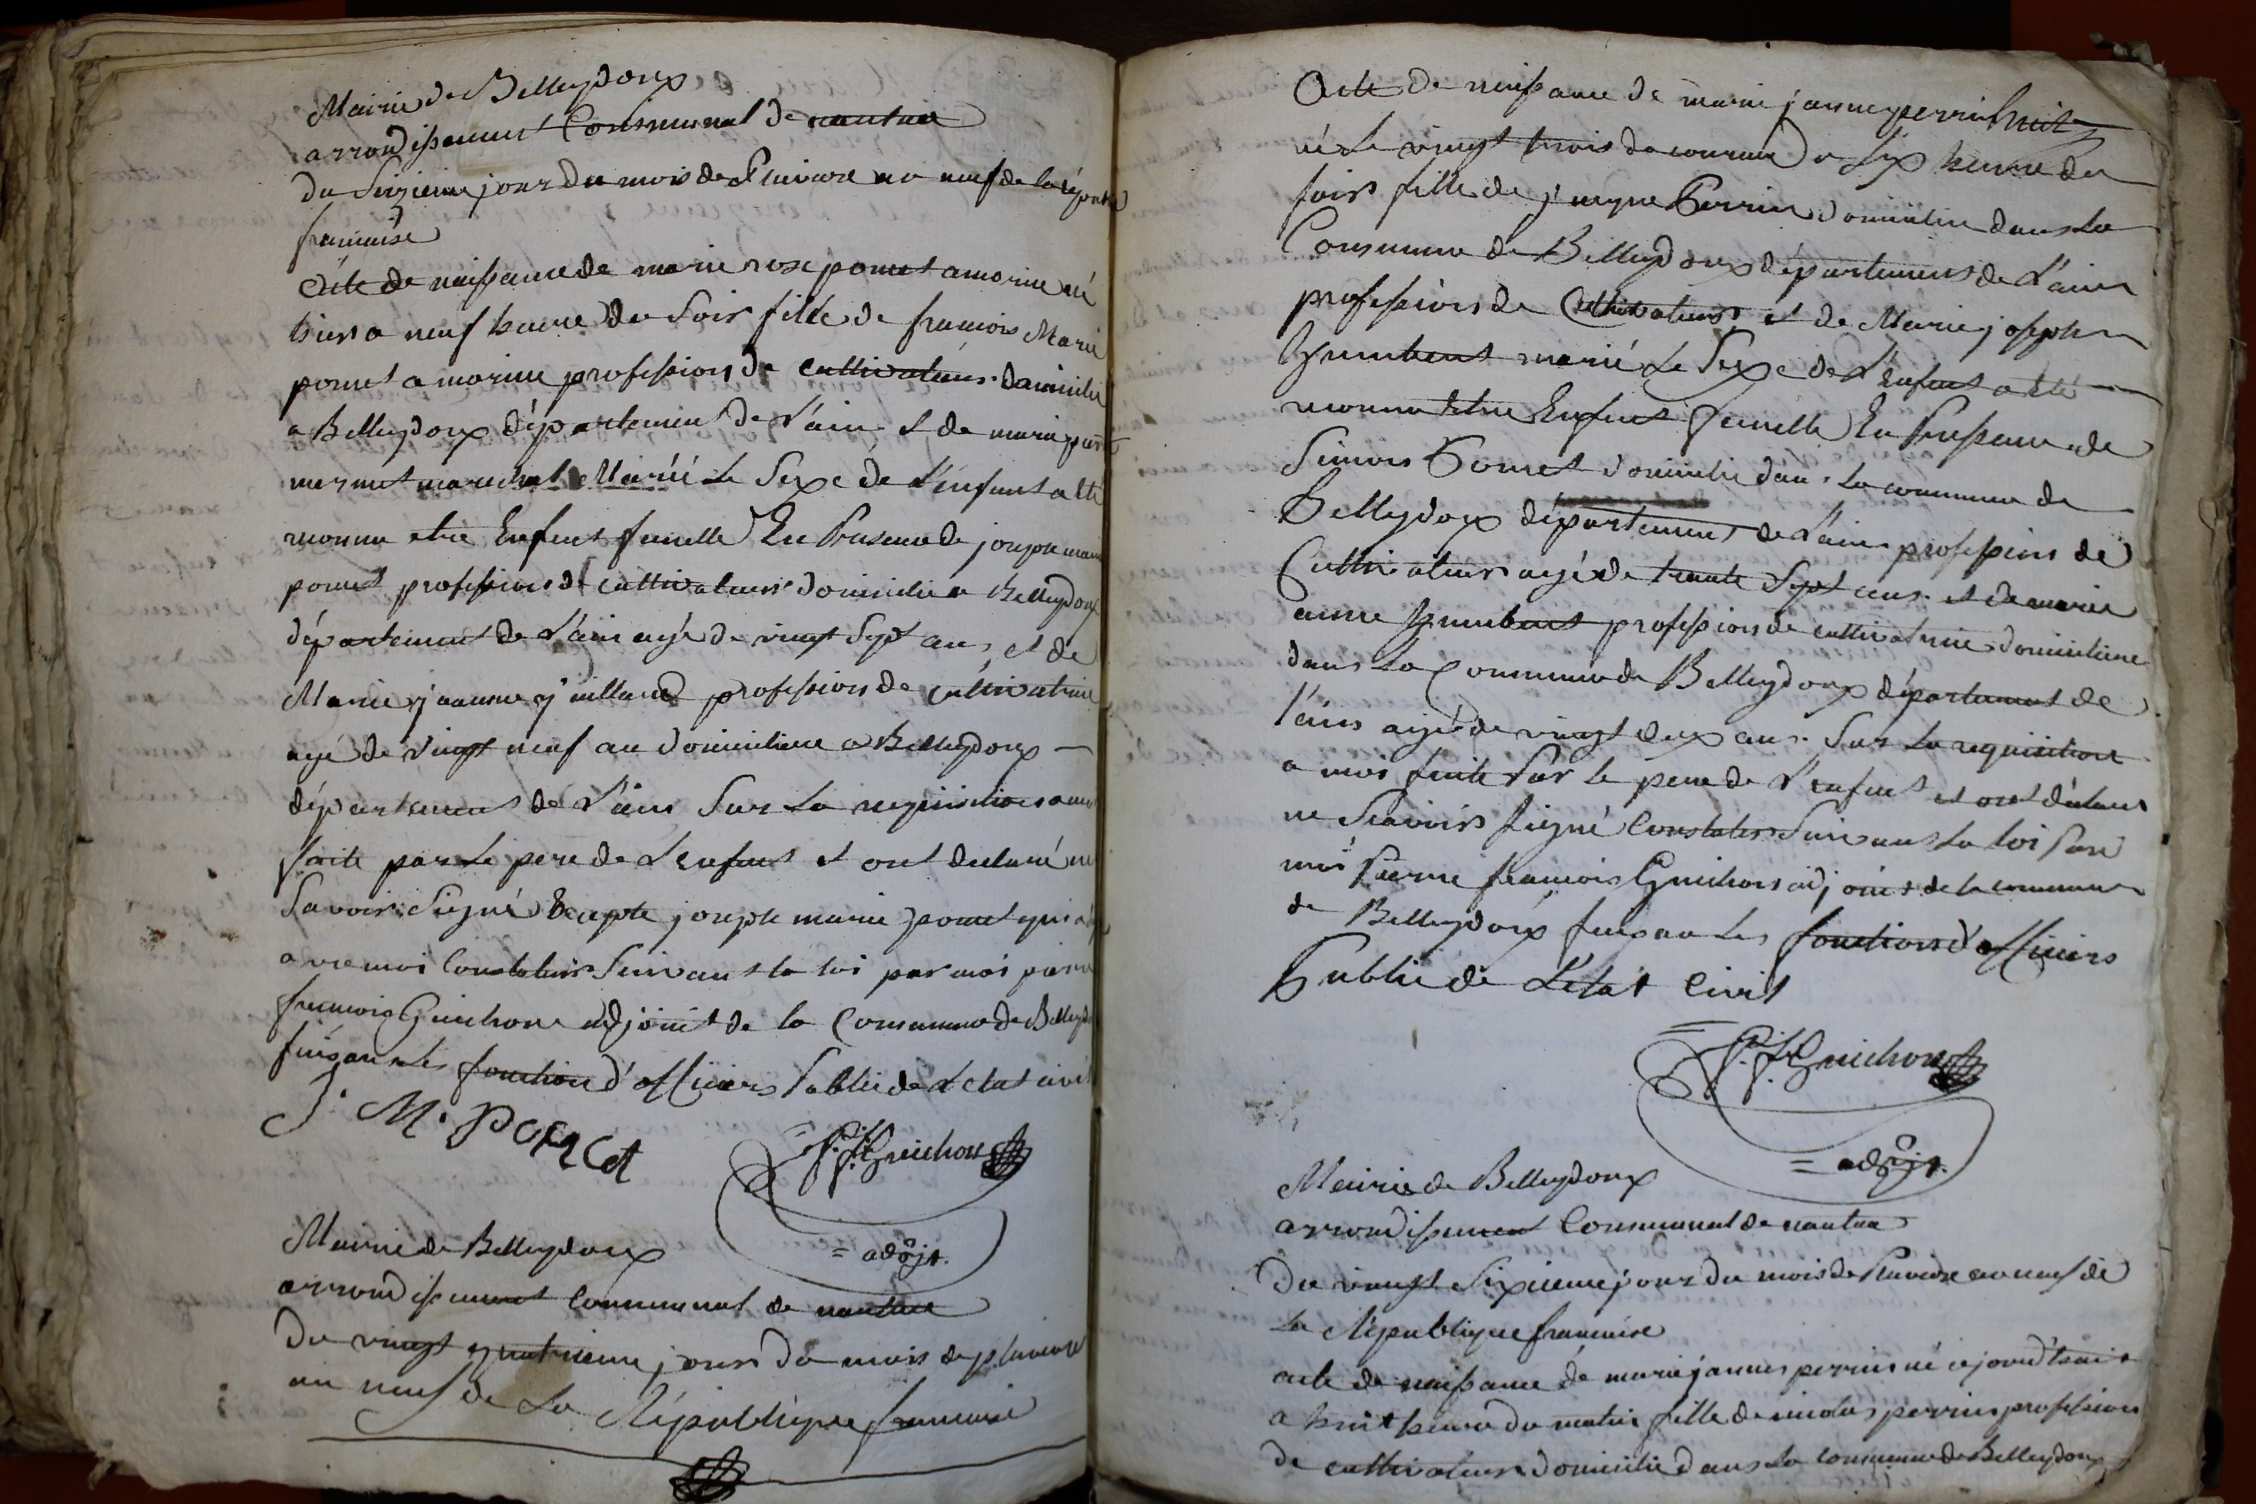 Mairie de Belleydoux
arrondissement Communal de nantua
du Seizieme jour du mois de Pluviose an neuf de la répub
francaise
Acte de naissance de marie rose poncet amorine né
hier a neuf heure du Soir fille de francois Marie
poncet a morine profession de cultivateurs domicilie
a Belleydoux département de l'ain et de marie
mermet marechal Marié Le Sexe de L'enfant a ete
reconnu etre Enfant femelle En Presence de joseph marie
poncet profession de cultivateurs domicilie a Belleydoux
département de l'ain agé de vingt Sept ans et de
Marie jeanne juillard profession de cultivatrice
agé de vingt neuf an domiciliere a Belleydoux
département de l'ain Sur La requisition a moi
faite par Le pere de L'enfant et ont declaré ne
Savoir Signé Excepte joseph marie poncet qui a
avec moi Constater Suivant la loi par moi pierre
francois Guichon adjoint de la Commune de Belleydoux
faisant les fonction d'officiers Public de L'etat civil
J. M. poncet
P. F. Guichon
= adjt.
Mairie de Belleydoux
arrondissement Communal de nantua
du vingt quatrieme jours du mois de pluviose
an neuf de La République francaise
Acte de naissance de marie janne perrin
né Le vingt trois du courant a Six heure du
soir fille de Perrin domicilie dans La
Commune de Belleydoux département de L'ain
profession de Cultivateurs et de Marie joseph
humbert marié Le Sexe de L'enfant a été
reconnu Etre Enfant femelle En Presence de
Simon Poncet domicilie dans La commune de
Belleydoux département de L'ain profession de
Cultivateurs agé de trente Sept ans et de marie
anne humbert profession de cultivatrice domiciliere
dans La Commune de Belleydoux département de
l'ain agé de vingt deux ans Sur La requisition
a moi faite Par le pere de L'enfant et ont déclaré
ne Scavoir Signé Constater Suivant La loi Par
moi Pierre francois Guichon adjoint de la commune
de Belleydoux faisan Les fonctions d'officiers
Public de L'etat Civil
P. F. Guichon
= adjt.
Mairie de Belleydoux
arrondissement Communal de nantua
Du vingt Sixieme jour du mois de Pluviose an neuf de
La République francaise
acte de naissance de marie jannes perrin né cejourd'huit
a huit heure du matin fille de nicolas perrin profession
de cultivateurs domicilié dans La commune de Belleydoux